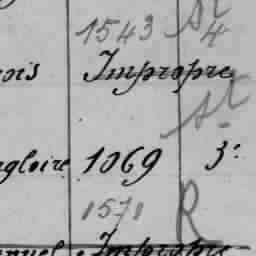 1543 St 4
ois Impropre
St
gloire 1069 3e
1571 R
nuel Impropre